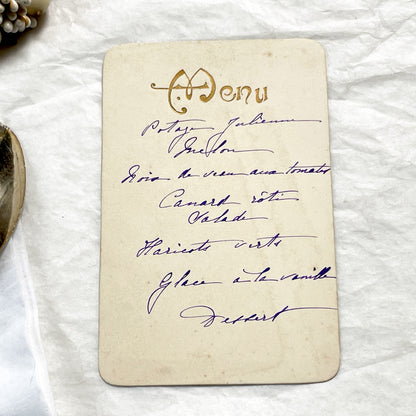 Menu
Potage Julienne
Melon
Noix de veau aux tomates
Canard rôti
Salade
Haricots verts
Glace à la vanille
Dessert